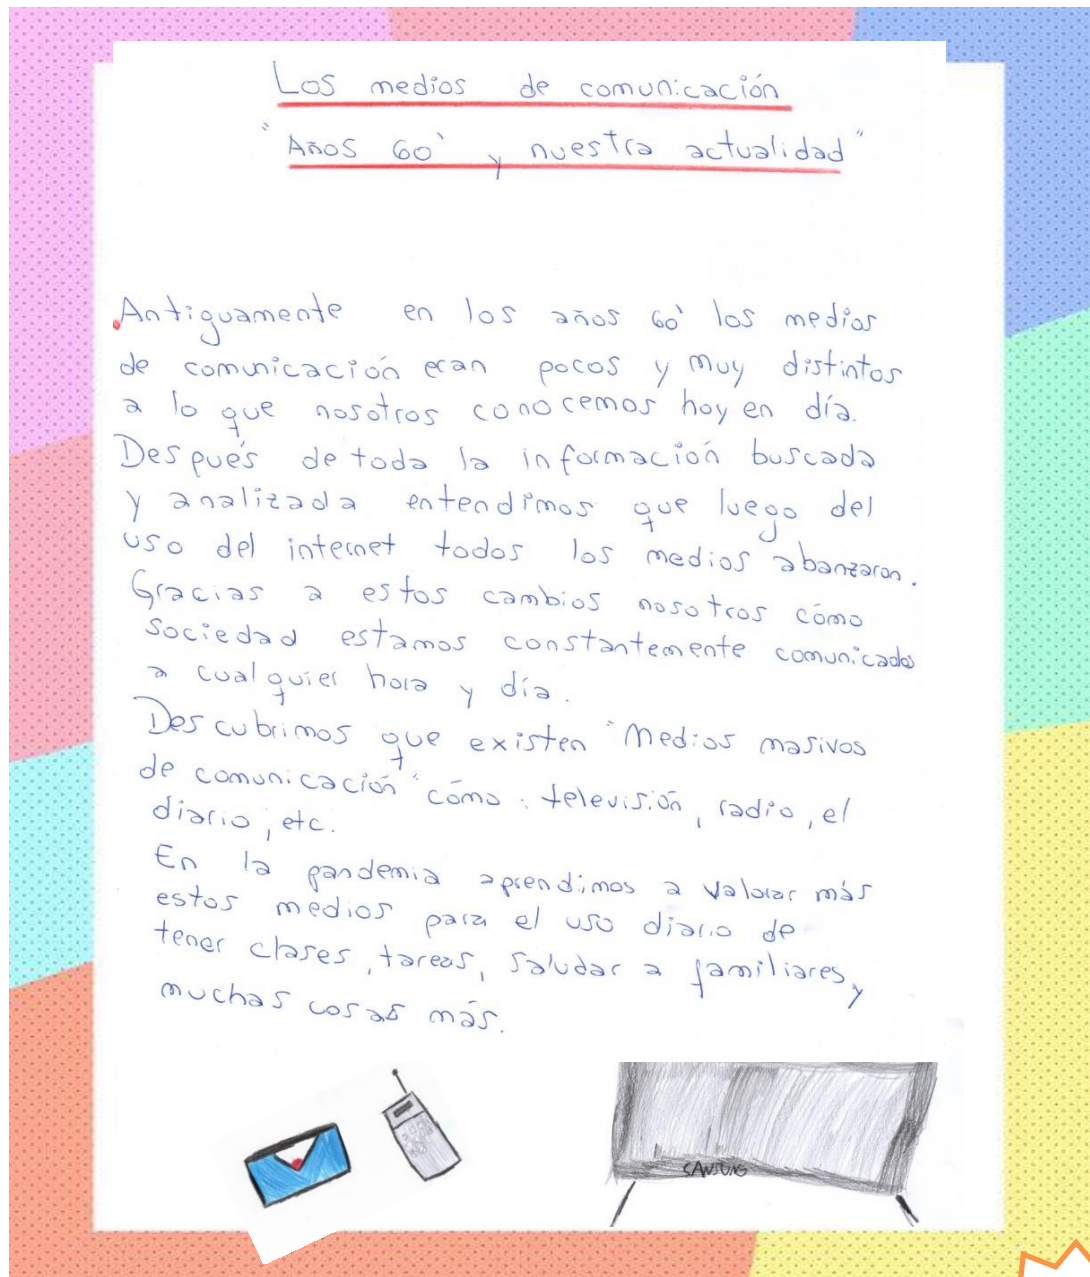 Los medios de comunicación
"Años 60` y nuestra actualidad"
Antiguamente en los años 60` los medios
de comunicación eran pocos y muy distintos
a lo que nosotros conocemos hoy en día.
Después de toda la información buscada
y analizada entendimos que luego del
uso del internet todos los medios abanzaron.
Gracias a estos cambios nosotros cómo
sociedad estamos constantemente comunicados
a cualquier hora y día.
Descubrimos que existen "Medios masivos
de comunicación" cómo: televisión, radio, el
diario, etc.
En la pandemia aprendimos a valorar más
estos medios para el uso diario de
tener clases, tareas, saludar a familiares, y
muchas cosas más.
SAMSUNG